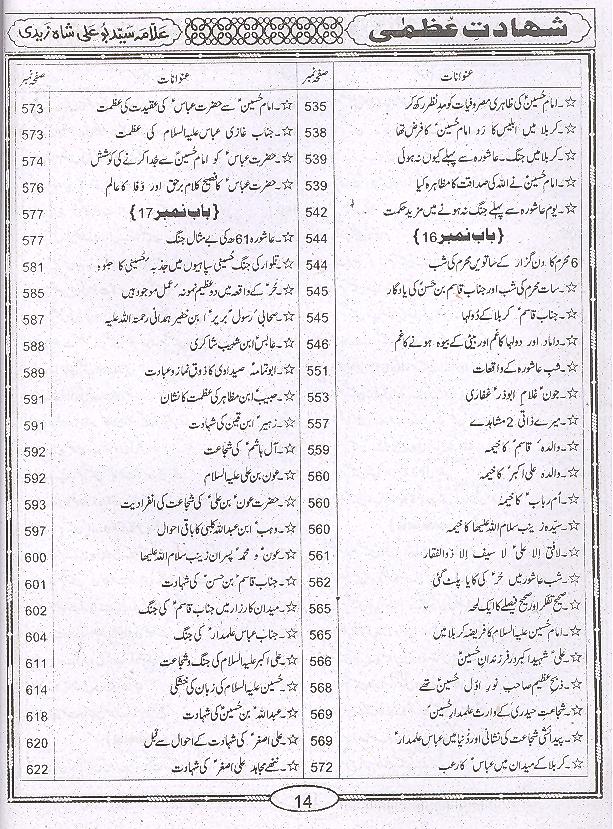 شہادتِ عظمیٰ
علامہ سید بو علی شاہ زیدی
عنوانات صفحہ نمبر
☆۔امام حسینؑ کی ظاہری مصروفیات کو مد نظر رکھ کر 535
☆۔کربلا میں ابلیس کا رد امام حسینؑ کا فرض تھا 538
☆۔کربلا میں جنگ۔عاشورہ سے پہلے کیوں نہ ہوئی 539
☆۔امام حسینؑ نے اللہ کی صداقت کا مظاہرہ کیا 539
☆۔یوم عاشورہ سے پہلے جنگ نہ ہونے میں مزید حکمت 542
﴿باب نمبر 16﴾ 544
6 محرم کا دن گزار کے ساتویں محرم کی شب 544
☆۔سات محرم کی شب اور جناب قاسم بن حسنؑ کی یادگار 545
☆۔جناب قاسمؑ کربلا کے دولہا 545
☆۔داماد اور دولہا کا غم اور بیٹی کے بیوہ ہونے کا غم 546
☆۔شب عاشورہ کے واقعات 551
☆۔جونؑ غلامِ ابوذرؓ غفاری 553
☆۔میرے ذاتی 2 مشاہدے 557
☆۔والدہ قاسمؑ کا خیمہ 559
☆۔والدہ علی اکبرؑ کا خیمہ 560
☆۔اُم ربابؑ کا خیمہ 560
☆۔سیدہ زینب سلام اللہ علیھا کا خیمہ 560
☆۔لافتیٰ الا علیؑ لا سیف الا ذوالفقار 561
☆۔شب عاشور میں حُرؑ کی کایا پلٹ گئی 562
☆۔صحیح تفکر اور صحیح فیصلے کا ایک لمحہ 565
☆۔امام حسین علیہ السلام کا فریضہ کربلا میں 565
☆۔علیؑ شہید اکبر در فرزندان حسینؑ 566
☆۔ذبح عظیم صاحب نور اوّل حسینؑ تھے 568
☆۔شجاعتِ حیدری کے وارث علمدارِ حسینؑ 569
☆۔پیدائشی شجاعت کی نشانی اور دُنیا میں عباس علمدارؑ 569
☆۔کربلا کے میدان میں عباسؑ کا رعب 572
عنوانات صفحہ نمبر
☆۔امام حسینؑ سے حضرت عباسؑ کی عقیدت کی عظمت 573
☆۔جناب غازی عباس علیہ السلام کی عظمت 573
☆۔حضرت عباسؑ کو امام حسینؑ سے جُدا کرنے کی کوشش 574
☆۔حضرت عباسؑ کا فصیح کلام برحق اور وفا کا عالم 576
﴿باب نمبر 17﴾ 577
☆۔عاشورہ 61ھ کی بے مثال جنگ 577
☆۔تلوار کی جنگ حسینی سپاہیوں میں جذبہ حسینی کا جلوہ 581
☆۔حُرؑ کے واقعہ میں دو عظیم نمونہ عمل موجود ہیں 585
☆۔صحابی رسولؐ بریر ابن خضیر ہمدانی رحمۃ اللہ علیہ 587
☆۔عابس ابن شہیب شاکری 588
☆۔ابوثمامہ صیداوی کا ذوق نماز و عبادت 589
☆۔حبیب ابن مظاہر کی عظمت کا نشان 591
☆۔زہیر ابن قین کی شہادت 591
☆۔آل ہاشم کی شجاعت 592
☆۔عون بن علی علیہ السلام 592
☆۔حضرت عون بن علیؑ کی شجاعت کی انفرادیت 593
☆۔وہب ابن عبداللہ کلبی کا باقی احوال 597
☆۔عونؑ و محمدؑ پسران زینب سلام اللہ علیھا 600
☆۔جناب قاسم بن حسنؑ کی شہادت 601
☆۔میدان کارزار میں جناب قاسمؑ کی جنگ 602
☆۔جناب عباس علمدارؑ کی جنگ 604
☆۔علی اکبر علیہ السلام کی جنگ و شجاعت 611
☆۔حسین علیہ السلام کی زبان کی خشکی 614
☆۔عبداللہ بن حسینؑ کی شہادت 618
☆۔علی اصغرؑ کی شہادت کے احوال سے قبل 620
☆۔ننھے مجاہد علی اصغرؑ کی شہادت 622
14